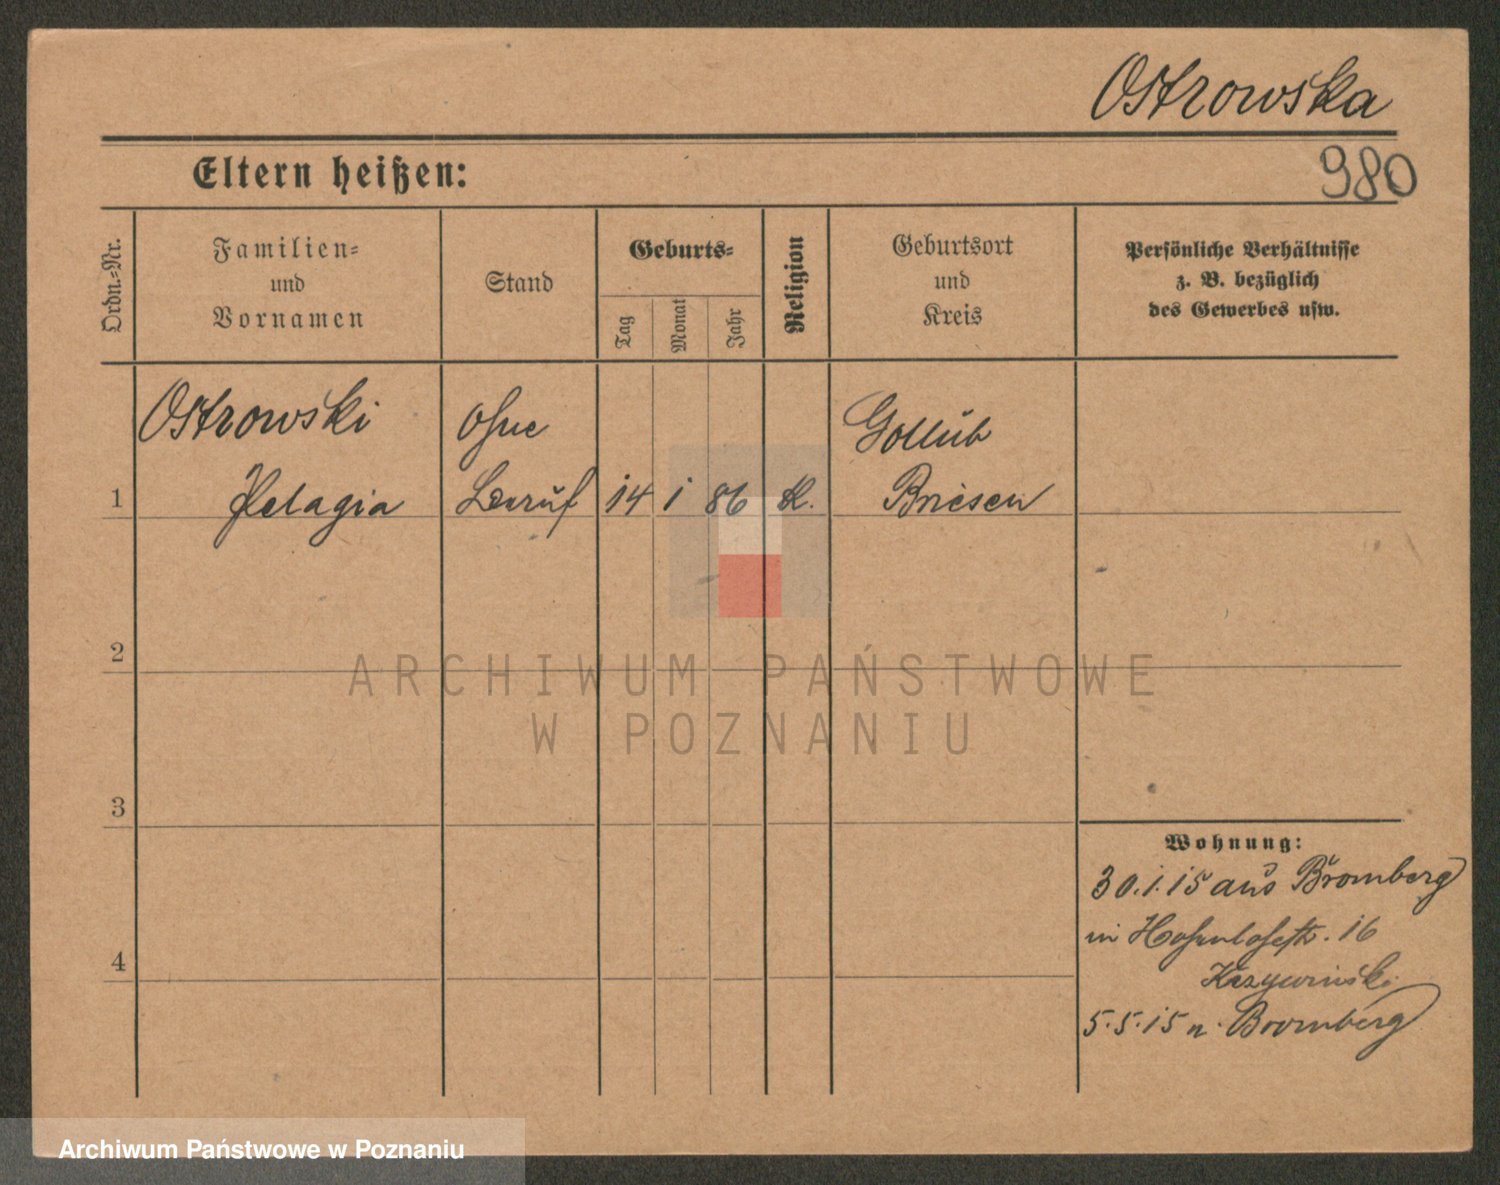 Ostrowska
Eltern heißen:
980
Ordn.-Nr.
Familien-
und
Vornamen
Stand
Geburts-
Tag
Monat
Jahr
Religion
Geburtsort
und
Kreis
Persönliche Verhältnisse
z. B. bezüglich
des Gewerbes usw.
Ostrowski
ohne
Gollub
1
Pelagia
Beruf
14
1
86
K.
Briesen
2
ARCHIWUM PAŃSTWOWE
W POZNANIU
3
Wohnung:
30.1.15 aus Bromberg
in Hohenlohestr. 16
4
5.5.15 n. Bromberg
Archiwum Państwowe w Poznaniu